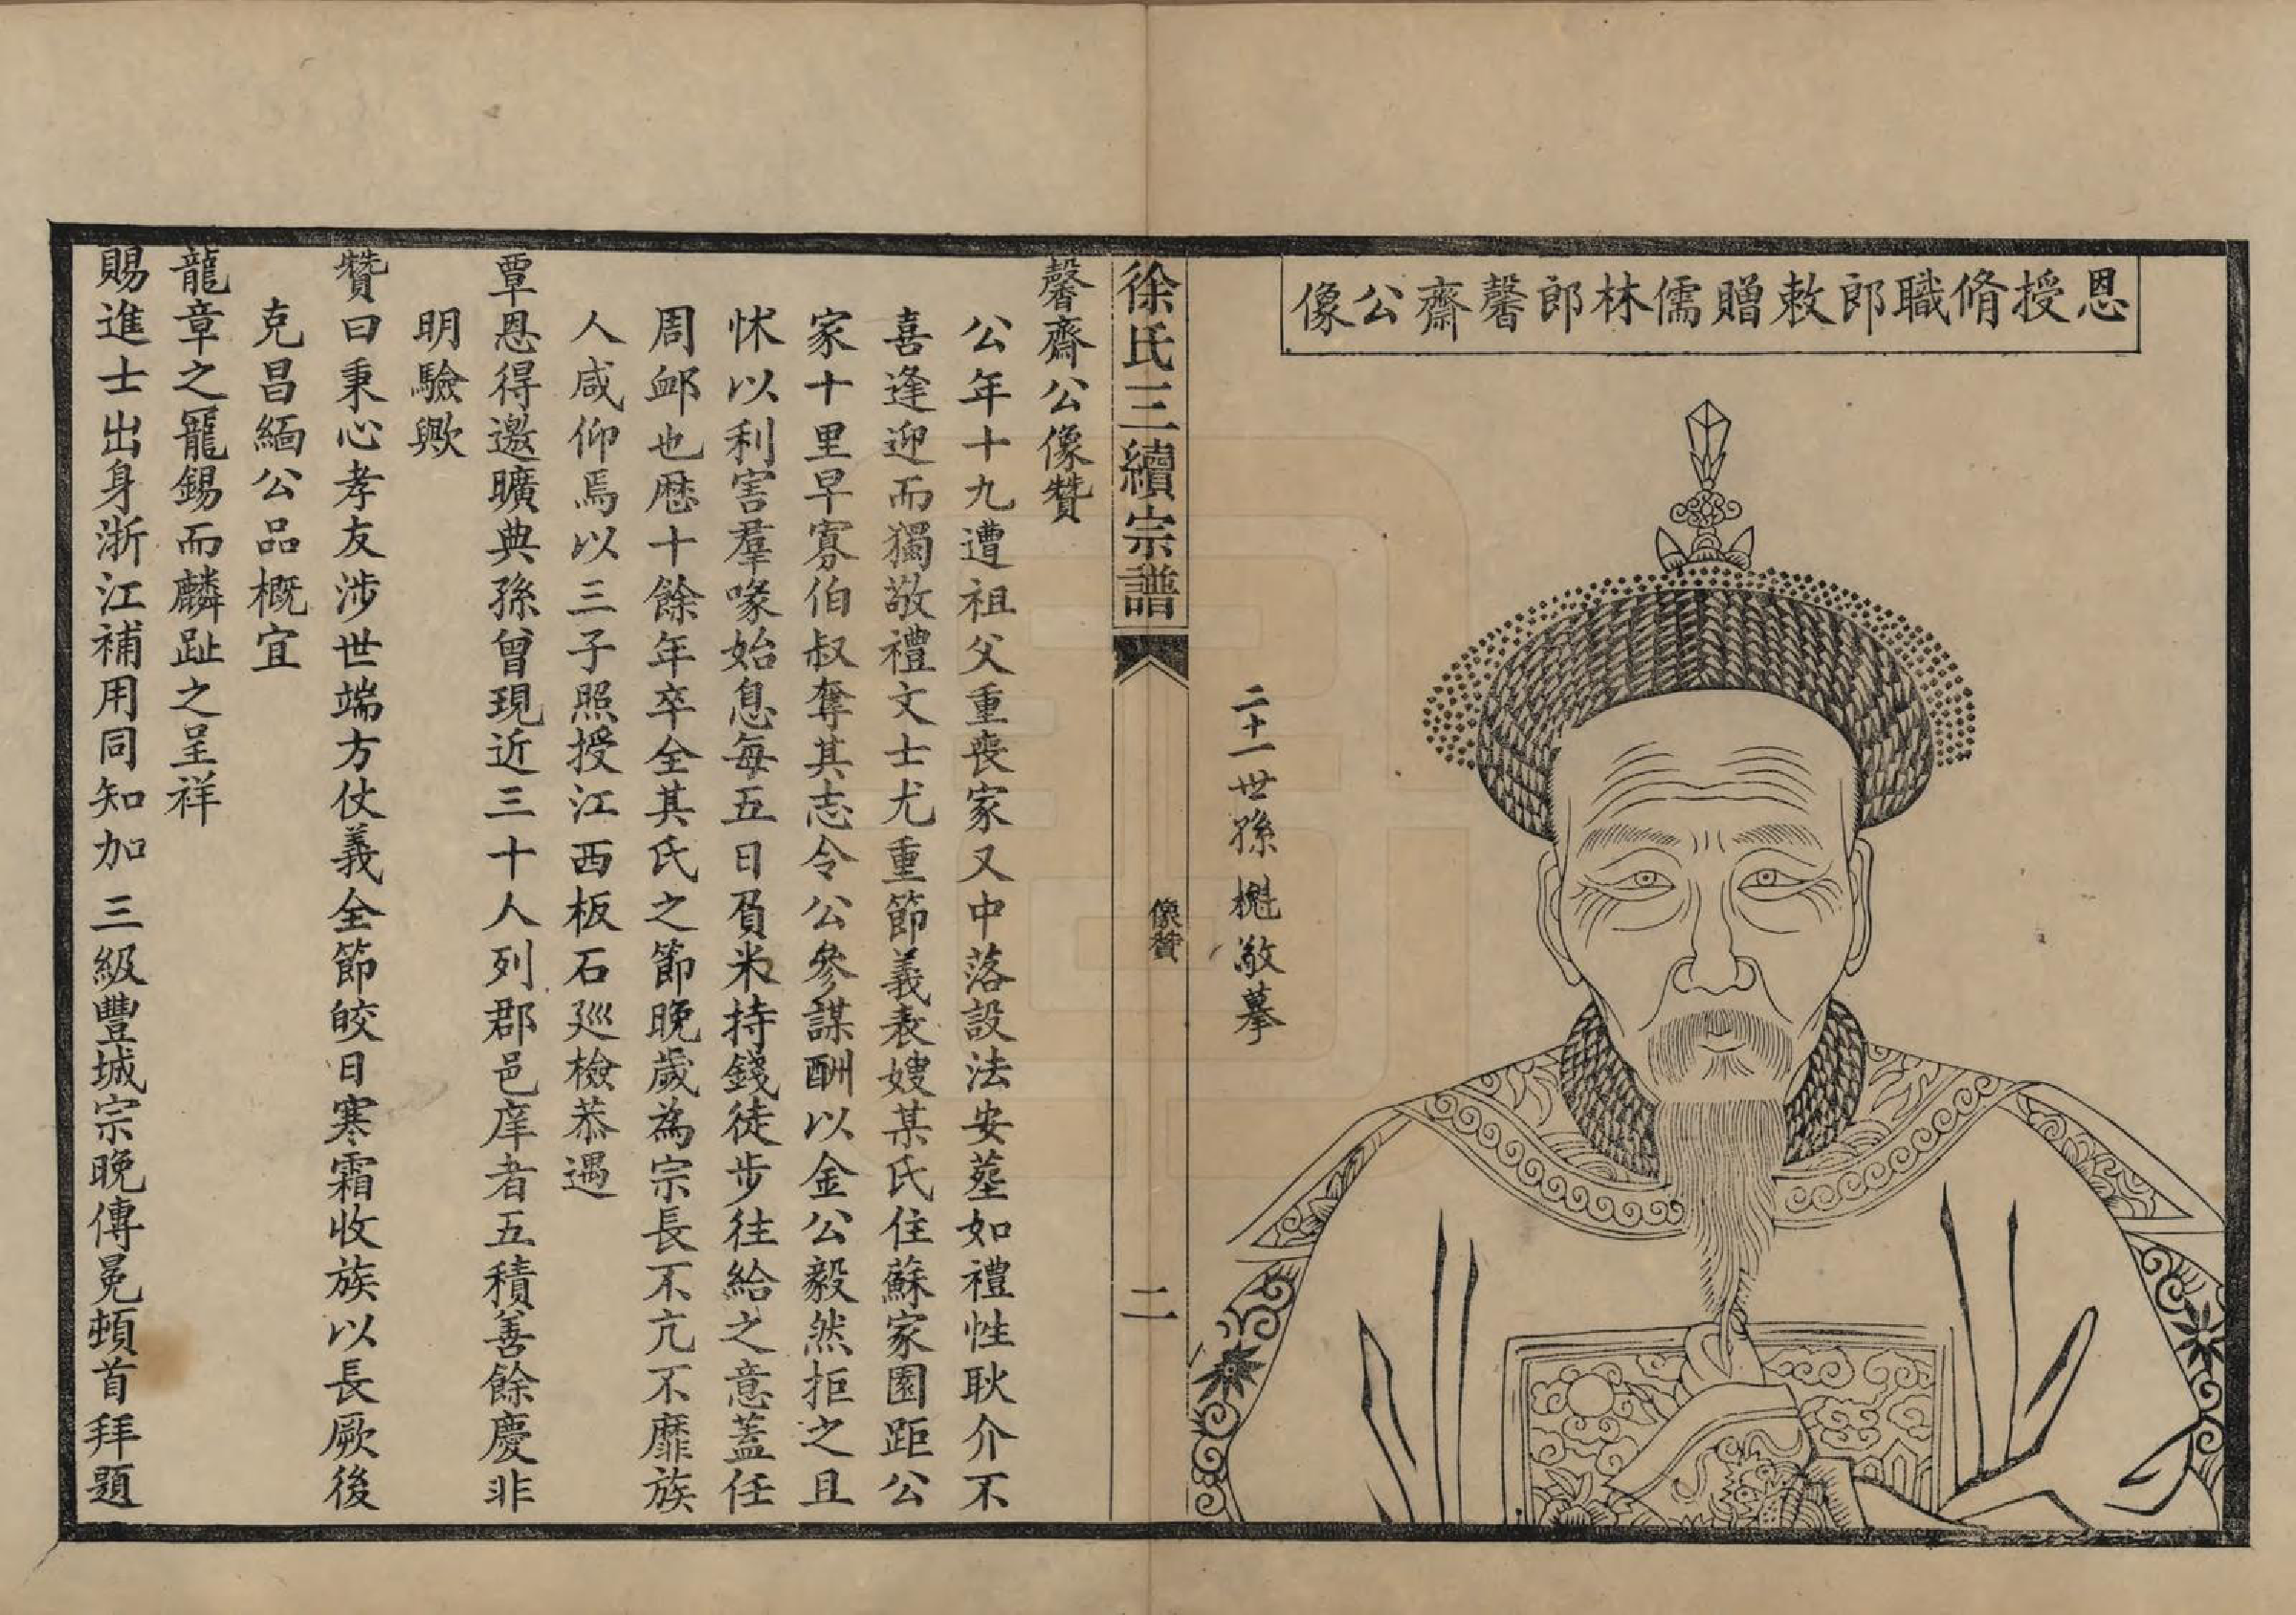 恩授脩職郎敕贈儒林郎馨齋公像
二十一世孫 櫆敬摹
徐氏三續宗譜
像贊
二
馨齋公像贊
公年十九遭祖父重喪家又中落設法安塟如禮性耿介不
喜逢迎而獨敬禮文士尤重節義表嫂某氏住蘇家園距公
家十里早寡伯叔奪其志令公參謀酬以金公毅然拒之且
怵以利害羣喙始息每五日負米持錢徒步往給之意蓋任
周卹也歷十餘年卒全其氏之節晚歲為宗長不亢不靡族
人咸仰焉以三子照授江西板石巡檢恭遇
覃恩得邀曠典孫曾現近三十人列郡邑庠者五積善餘慶非
明驗歟
贊曰秉心孝友涉世端方仗義全節皎日寒霜收族以長厥後
克昌緬公品概宜
龍章之寵錫而麟趾之呈祥
賜進士出身浙江補用同知加三級豐城宗晚傳冕頓首拜題